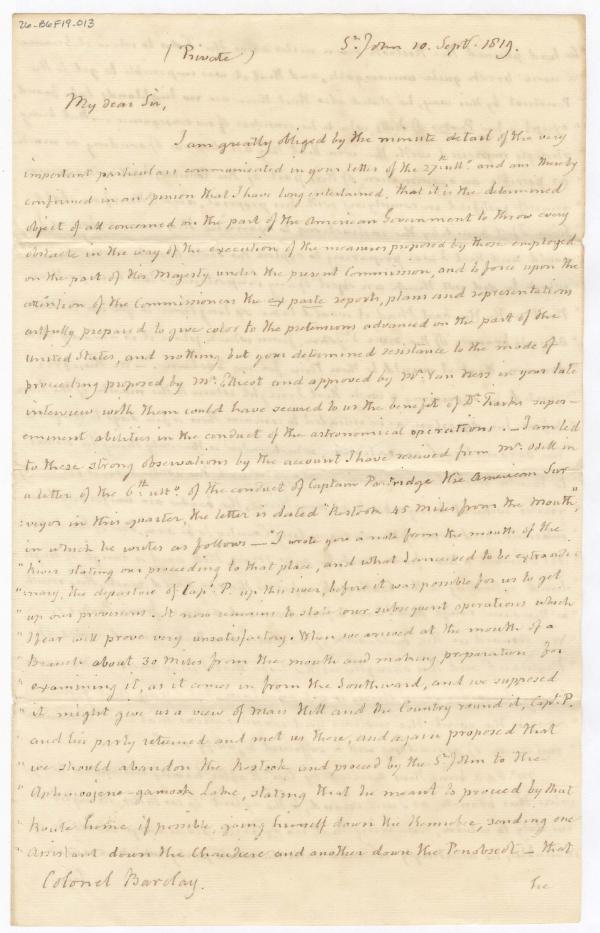 26-B6F19-013
(Private) St. John 10. Septr. 1819.
My dear Sir,
I am greatly obliged by the minute detail of the very
important particulars communicated in your letter of the 27th. ulto. and am thereby
confirmed in an opinion that I have long entertained, that it is the determined
object of all concerned on the part of the American Government to throw every
obstacle in the way of the execution of the measures proposed by those employed
on the part of His Majesty under the present Commission, and to force upon the
attention of the Commissioners the ex parte reports, plans and representations
artfully prepared to give color to the pretensions advanced on the part of the
United States, and nothing but your determined resistance to the mode of
proceeding proposed by Mr. Ellicot and approved by Mr. Van Ness in your late
interview with them could have secured to us the benefit of Dr. Tiarks super-
eminent abilities in the conduct of the astronomical operations. — I am led
to these strong observations by the account I have received from Mr. Odell in
a letter of the 6th. ulto. of the conduct of Captain Partridge the American Sur
veyor in this quarter, the letter is dated "Restook 45 miles from the mouth",
in which he writes as follows — "I wrote you a note from the mouth of the
"River stating our proceeding to that place, and what I conceived to be extraordi-
"nary, the departure of Capt. P. up this river, before it was possible for us to get
"up our provisions. It now remains to state our subsequent operations which
"I fear will prove very unsatisfactory. When we arrived at the mouth of a
"Branch about 30 miles from the mouth and making preparation for
"examining it, as it comes in from the Southward, and we supposed
"it might give us a view of Mars Hill and the Country round it, Capt. P.
"and his party returned and met us there, and again proposed that
"we should abandon the Restook and proceed by the St. John to the
" Lake, stating that he meant to proceed by that
"Route home if possible, going himself down the Kennebec, sending one
"Assistant down the Chaudiere and another down the Penobscot — that
Colonel Barclay. he